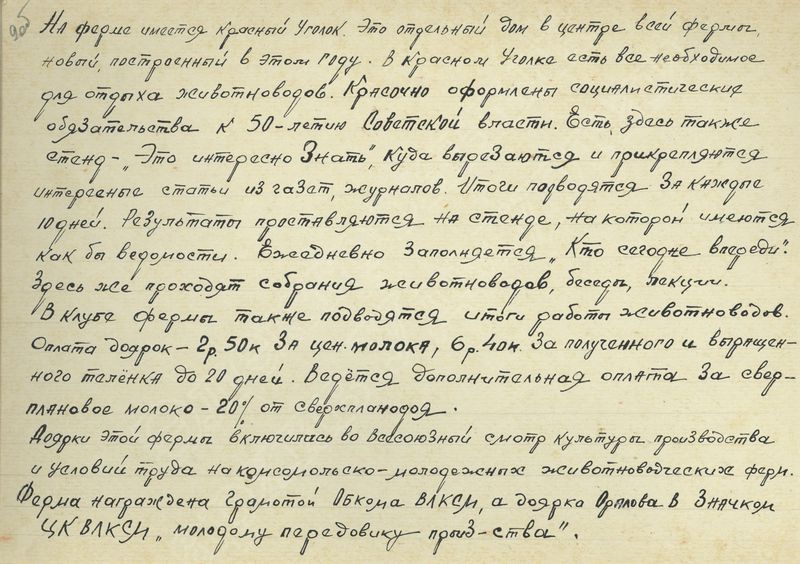 90б
На ферме имеется Красный Уголок. Это отдельный дом в центре всей фермы,
новый, построенный в этом году. В Красном Уголке есть все необходимое
для отдыха животноводов. Красочно оформлены социалистические
обязательства к 50-летию Советской власти. Есть здесь также
стенд - „Это интересно Знать", куда вырезаются и прикрепляются
интересные статьи из газет, журналов. Итоги подводятся за каждые
10 дней. Результаты проставляются на стенде, на которой имеются
как бы ведомости. Ежедневно заполняется „Кто сегодне впереди".
Здесь же проходят собрания животноводов, беседы, лекции.
В клубе фермы также подводятся итоги работы животноводов.
Оплата доярок - 2р. 50к за цен. молока, 6р. 40к. за полученного и выращен-
ного телёнка до 20 дней. Ведётся дополнительная оплата за свер-
плановое молоко - 20% от сверхпланодоя.
Доярки этой фермы включились во всесоюзный смотр культуры производства
и условий труда на комсомольско-молодежных животноводческих ферм.
Ферма награждена грамотой Обкома ВЛКСМ, а доярка В Значком
ЦК ВЛКСМ „молодому передовику прыз-ства".